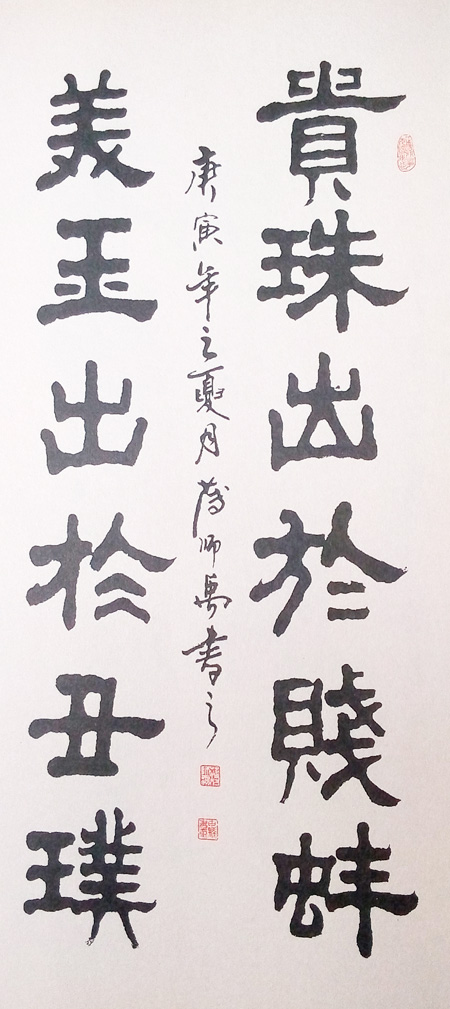 貴珠出於賤蚌
美玉出於丑璞
庚寅年之夏月薄师禹書之